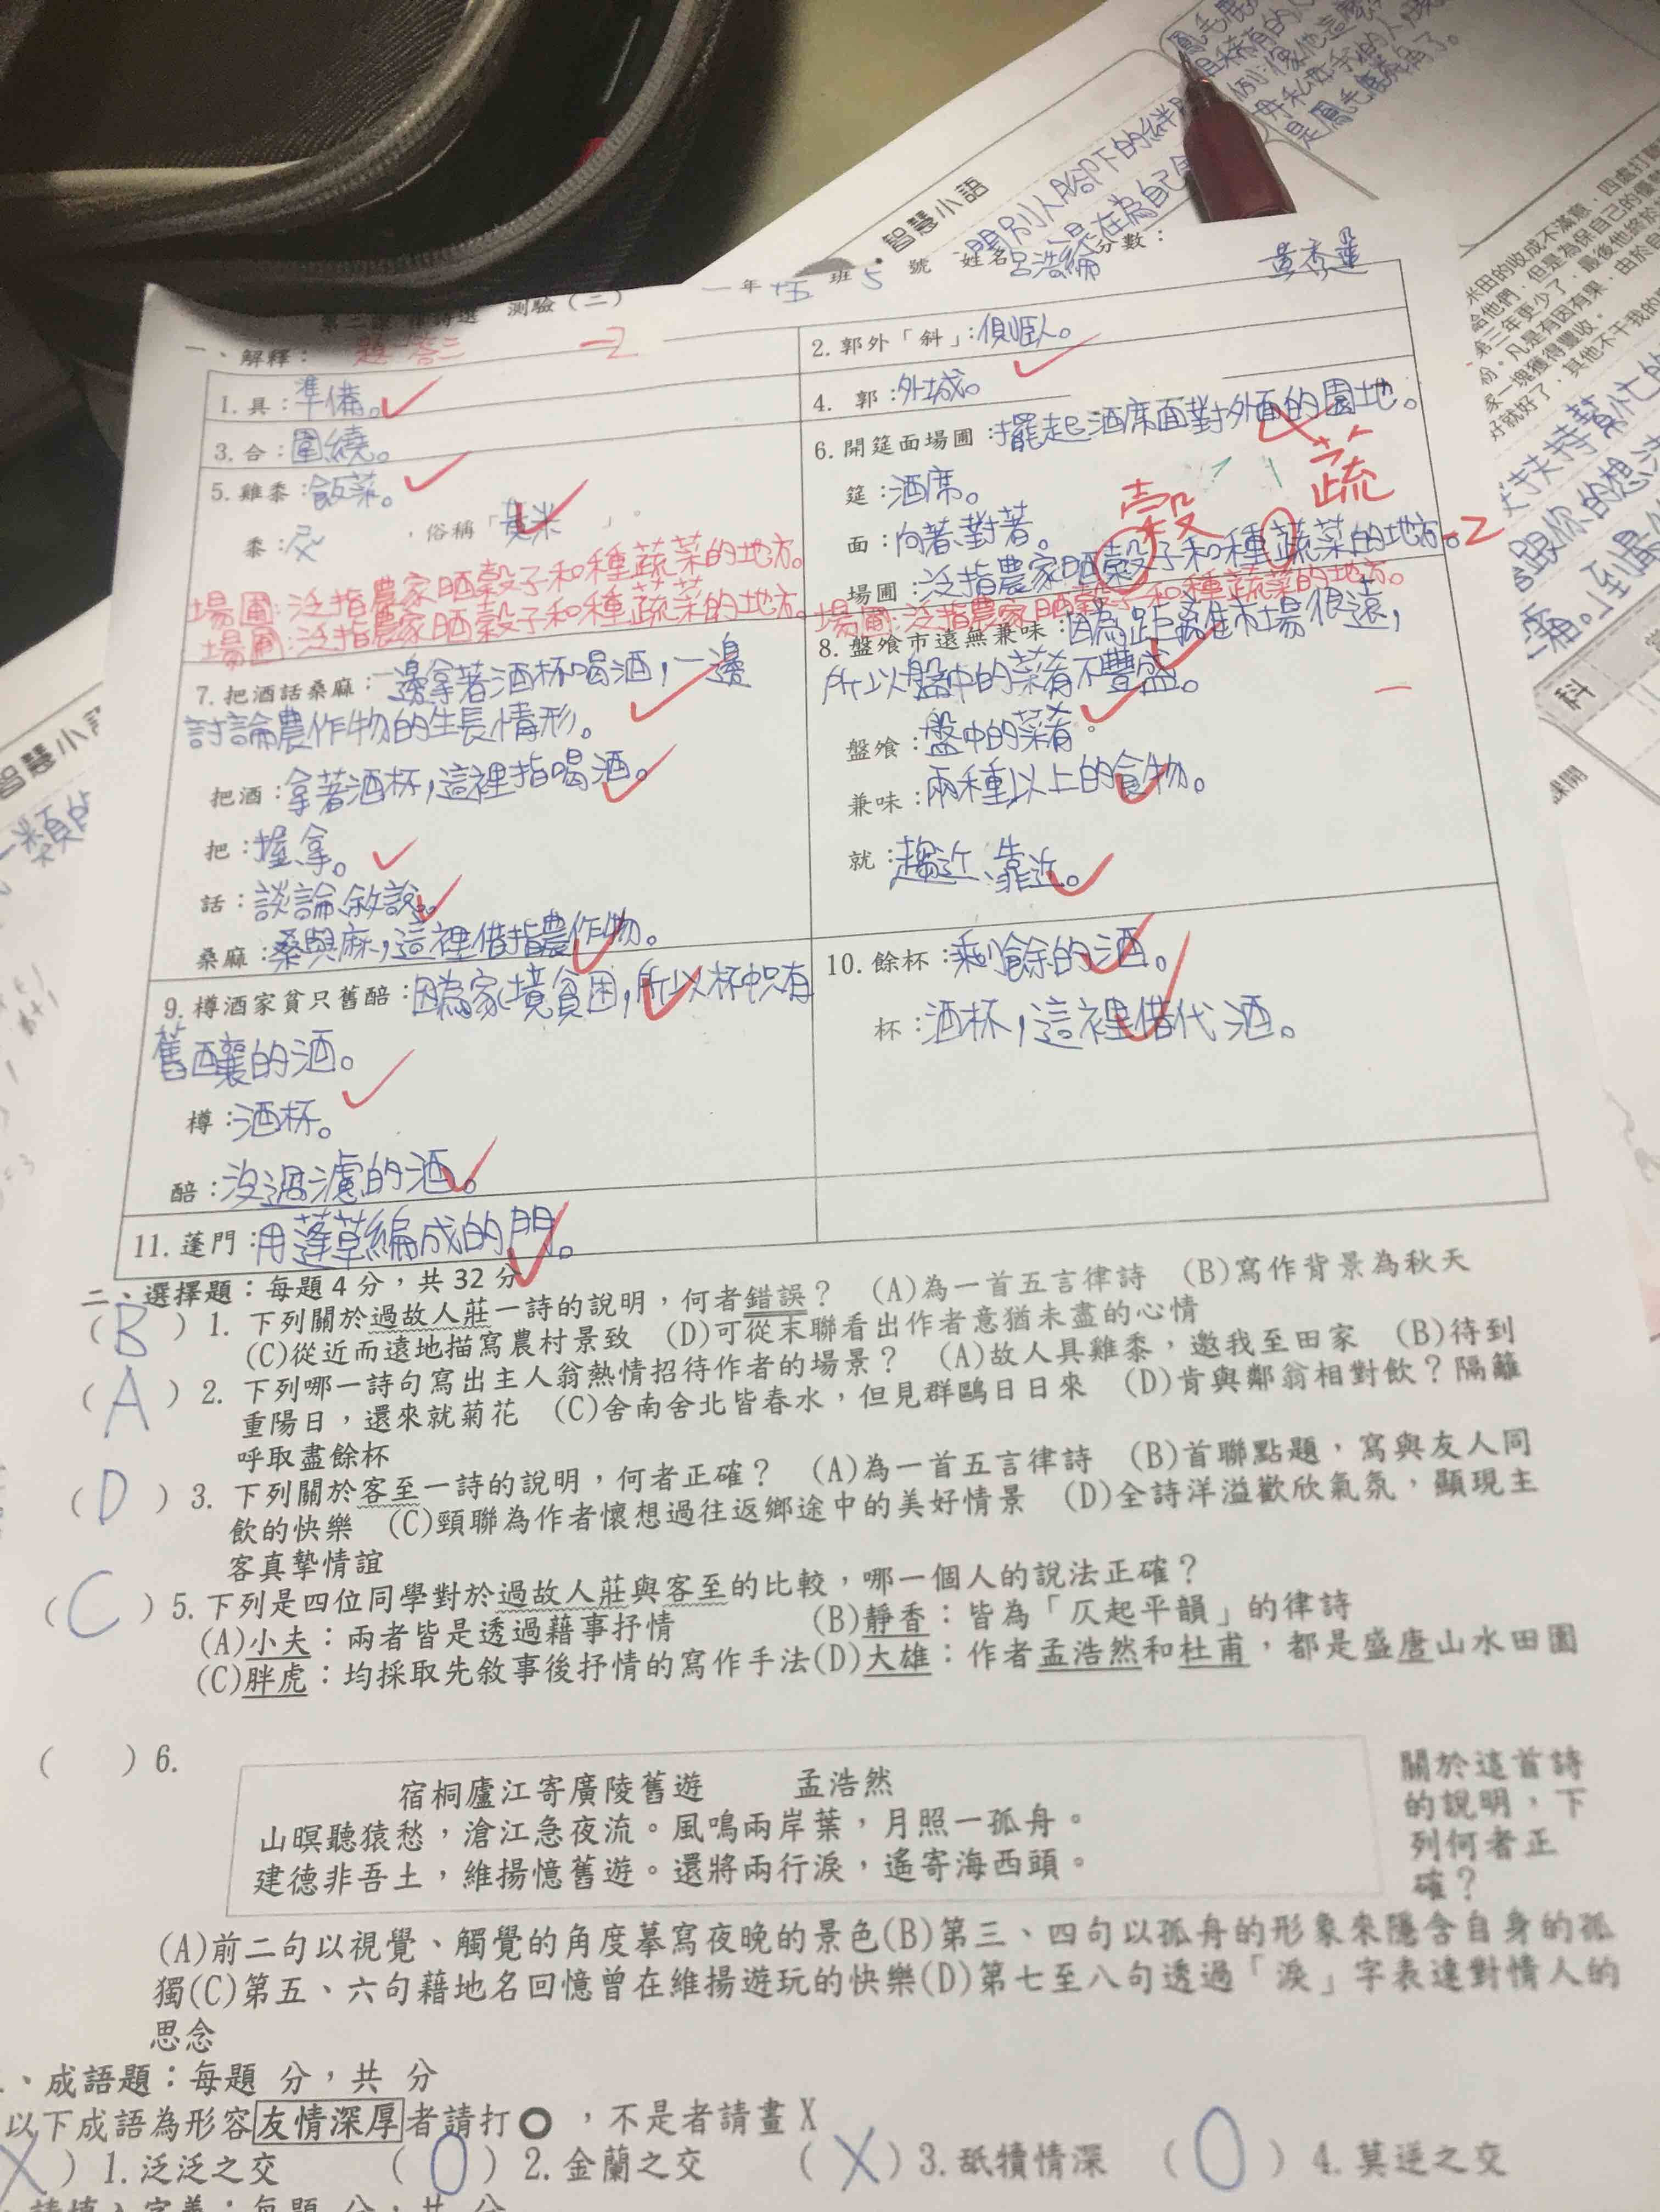 測驗(二)
一年 班 5 號 姓名 分數：
智慧小語
一、解釋：
-2
1. 具：準備。
2. 郭外「斜」：傾斜。
3. 合：圍繞。
4. 郭：外城。
5. 雞黍：飯菜。
黍： ，俗稱「黃米」。
6. 開筵面場圃：擺起酒席面對外面的園地。
筵：酒席。
面：向著、對著。
場圃：泛指農家晒穀子和種蔬菜的地方。-2
穀
蔬
場圃：泛指農家晒穀子和種蔬菜的地方。
場圃：泛指農家晒穀子和種蔬菜的地方。
場圃：泛指農家晒穀子和種蔬菜的地方。
7. 把酒話桑麻：一邊拿著酒杯喝酒，一邊
討論農作物的生長情形。
把酒：拿著酒杯，這裡指喝酒。
把：握、拿。
話：談論、敘說。
桑麻：桑與麻，這裡借指農作物。
8. 盤飧市遠無兼味：因為距離市場很遠，
所以盤中的菜肴不豐盛。
盤飧：盤中的菜肴。
兼味：兩種以上的食物。
就：趨近、靠近。
9. 樽酒家貧只舊醅：因為家境貧困，所以杯中只有
舊釀的酒。
樽：酒杯。
醅：沒過濾的酒。
10. 餘杯：剩餘的酒。
杯：酒杯，這裡借代酒。
11. 蓬門：用蓬草編成的門。
二、選擇題：每題 4 分，共 32 分
(B) 1. 下列關於過故人莊一詩的說明，何者錯誤？ (A)為一首五言律詩 (B)寫作背景為秋天
(C)從近而遠地描寫農村景致 (D)可從末聯看出作者意猶未盡的心情
(A) 2. 下列哪一詩句寫出主人翁熱情招待作者的場景？ (A)故人具雞黍，邀我至田家 (B)待到
重陽日，還來就菊花 (C)舍南舍北皆春水，但見群鷗日日來 (D)肯與鄰翁相對飲？隔籬
呼取盡餘杯
(D) 3. 下列關於客至一詩的說明，何者正確？ (A)為一首五言律詩 (B)首聯點題，寫與友人同
飲的快樂 (C)頸聯為作者懷想過往返鄉途中的美好情景 (D)全詩洋溢歡欣氣氛，顯現主
客真摯情誼
(C) 5. 下列是四位同學對於過故人莊與客至的比較，哪一個人的說法正確？
(A)小夫：兩者皆是透過藉事抒情 (B)靜香：皆為「仄起平韻」的律詩
(C)胖虎：均採取先敘事後抒情的寫作手法(D)大雄：作者孟浩然和杜甫，都是盛唐山水田園
( ) 6.
宿桐廬江寄廣陵舊遊 孟浩然
山暝聽猿愁，滄江急夜流。風鳴兩岸葉，月照一孤舟。
建德非吾土，維揚憶舊遊。還將兩行淚，遙寄海西頭。
關於這首詩
的說明，下
列何者正
確？
(A)前二句以視覺、觸覺的角度摹寫夜晚的景色(B)第三、四句以孤舟的形象來隱含自身的孤
獨(C)第五、六句藉地名回憶曾在維揚遊玩的快樂(D)第七至八句透過「淚」字表達對情人的
思念
、成語題：每題 分，共 分
以下成語為形容友情深厚者請打○，不是者請畫 X
X ) 1. 泛泛之交 ( O ) 2. 金蘭之交 ( X ) 3. 舐犢情深 ( O ) 4. 莫逆之交